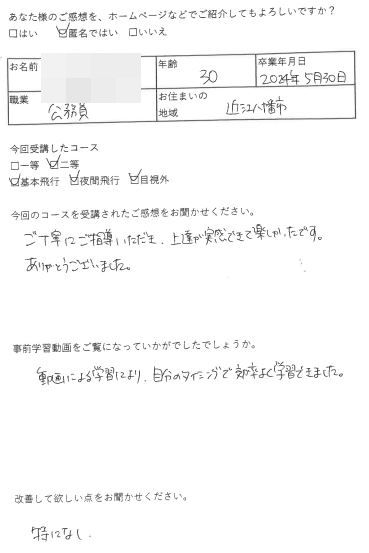 あなた様のご感想を、ホームページなどでご紹介してもよろしいですか？
□はい ☑匿名ではい □いいえ
お名前
年齢
30
卒業年月日
2024年5月30日
職業
公務員
お住まいの
地域
近江八幡市
今回受講したコース
□一等 ☑二等
☑基本飛行 ☑夜間飛行 ☑目視外
今回のコースを受講されたご感想をお聞かせください。
ご丁寧にご指導いただき、上達が実感できて楽しかったです。
ありがとうございました。
事前学習動画をご覧になっていかがでしたでしょうか。
動画による学習により、自分のタイミングで効率よく学習できました。
改善して欲しい点をお聞かせください。
特になし.